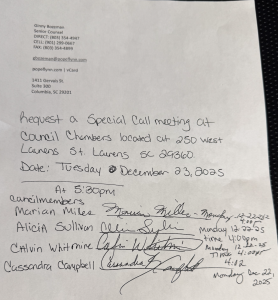 Ginny Bozeman
Senior Counsel
DIRECT: (803) 354-4947
CELL: (803)
FAX: (803) 354-4899
popeflynn.com | vCard
1411 Gervais St.
Suite 300
Columbia, SC 29201
Request a Special Call meeting at
Council Chambers located at 250 west
Laurens St. Laurens SC 29360
Date: Tuesday December 23, 2025
At 5:30pm
Councilmembers
Marian Miller Marian Miller - Monday 12-22-25
4:00pm
Alicia Sullivan monday 12-22-25
time 4:00pm
Calvin Whitmire Calvin Whitmire Monday 12-22-25
Time 4:00pm
Cassandra Campbell Cassandra Campbell 4:12
Monday Dec 22,
2025